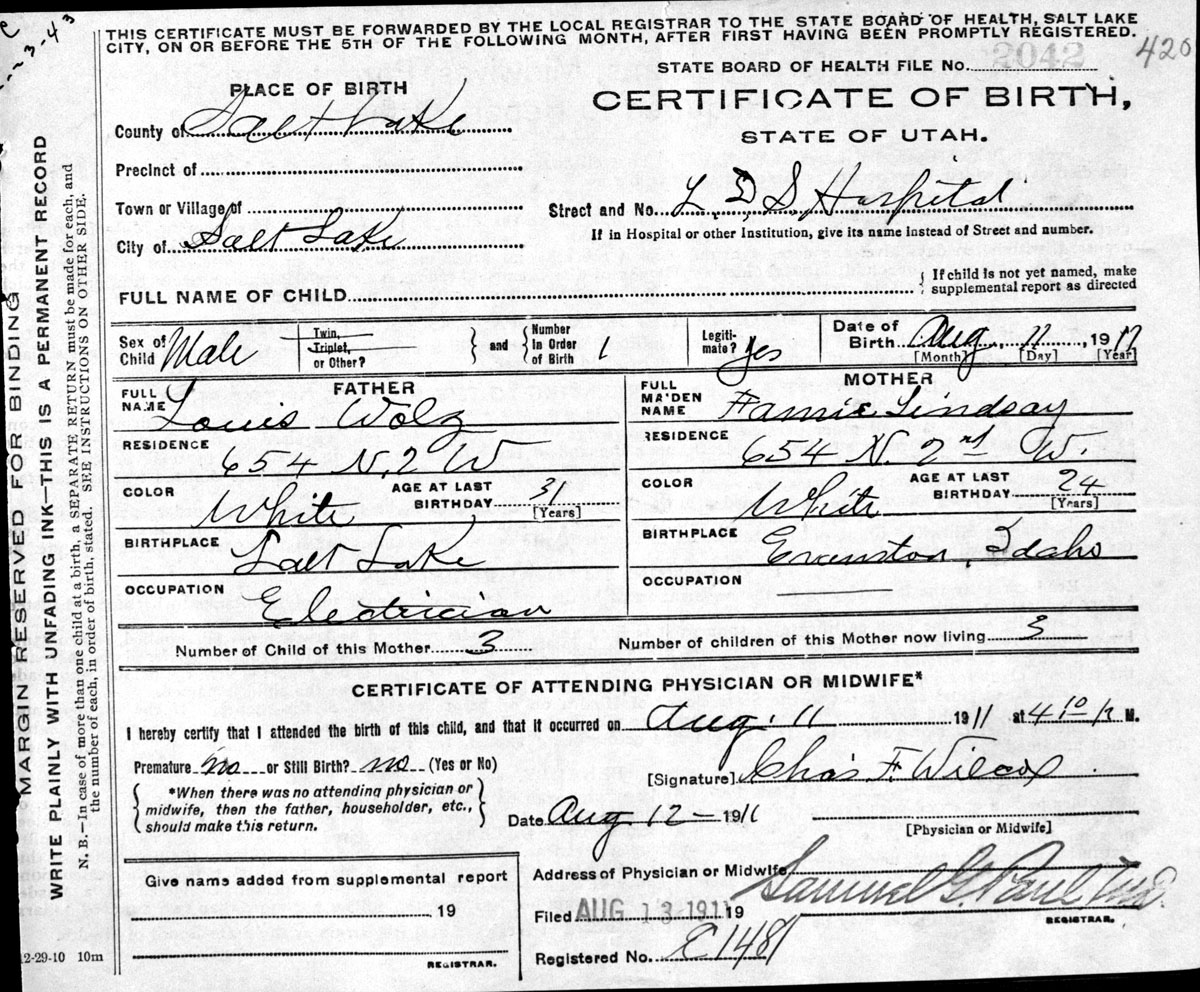 THIS CERTIFICATE MUST BE FORWARDED BY THE LOCAL REGISTRAR TO THE STATE BOARD OF HEALTH, SALT LAKE
CITY, ON OR BEFORE THE 5TH OF THE FOLLOWING MONTH, AFTER FIRST HAVING BEEN PROMPTLY REGISTERED.
STATE BOARD OF HEALTH FILE No. 2042
420
PLACE OF BIRTH
CERTIFICATE OF BIRTH,
STATE OF UTAH.
County of Salt Lake
Precinct of
Town or Village of
Street and No. L. D. S Hospital
City of Salt Lake
If in Hospital or other Institution, give its name instead of Street and number.
FULL NAME OF CHILD
{ If child is not yet named, make
supplemental report as directed
Sex of Child Male
Twin, Triplet, or Other? } and { Number In Order of Birth 1
Legiti-mate? yes
Date of Birth Aug 11, 1911
[Month] [Day] [Year]
FATHER
MOTHER
FULL NAME Louis Wolz
FULL MAIDEN NAME Fannie Lindsay
RESIDENCE 654 N. 2 W
RESIDENCE 654 N. 2nd W.
COLOR White AGE AT LAST BIRTHDAY 31 [Years]
COLOR White AGE AT LAST BIRTHDAY 24 [Years]
BIRTHPLACE Salt Lake
BIRTHPLACE Evanston, Idaho
OCCUPATION Electrician
OCCUPATION
Number of Child of this Mother 3
Number of children of this Mother now living 3
CERTIFICATE OF ATTENDING PHYSICIAN OR MIDWIFE*
I hereby certify that I attended the birth of this child, and that it occurred on Aug. 11 1911 at 4 10 P. M.
Premature no or Still Birth? no (Yes or No)
[Signature] Chas. F. Wilcox
{ *When there was no attending physician or
midwife, then the father, householder, etc.,
should make this return. }
Date Aug 12 - 1911
[Physician or Midwife]
Give name added from supplemental report
19
REGISTRAR.
Address of Physician or Midwife
Samuel G. Paul M.D.
Filed AUG 13 1911 19
REGISTRAR.
Registered No. E1481
2-29-10 10m
MARGIN RESERVED FOR BINDING
WRITE PLAINLY WITH UNFADING INK—THIS IS A PERMANENT RECORD
N. B.—In case of more than one child at a birth, a SEPARATE RETURN must be made for each, and
the number of each, in order of birth, stated. SEE INSTRUCTIONS ON OTHER SIDE.